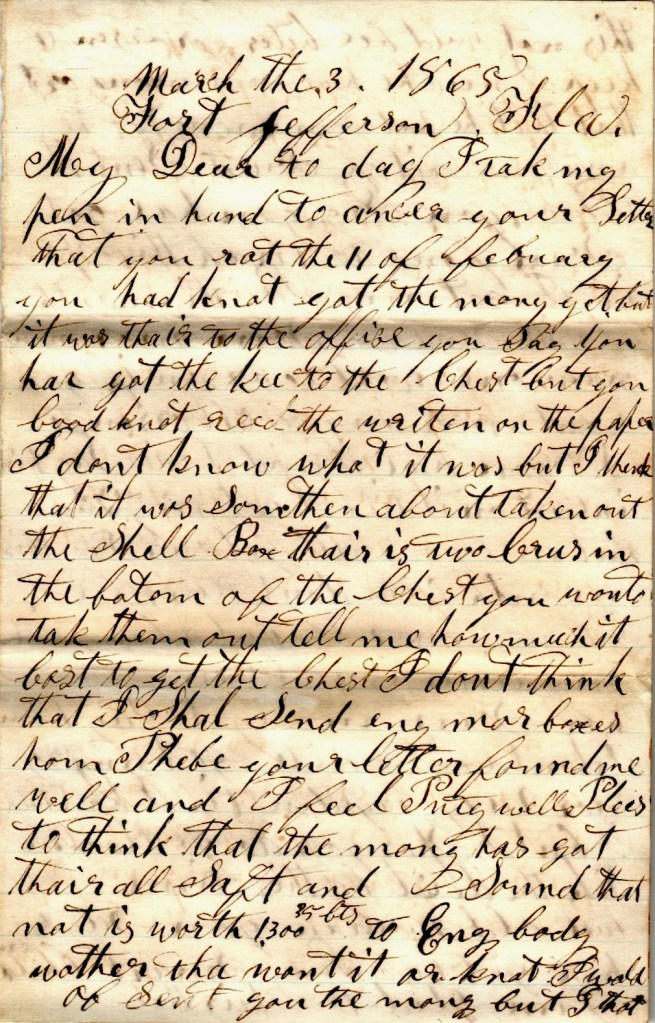 March the. 3. 1865
Fort Jefferson. Fla.
My Dear to day I tak my
pen in hand to ancer your Letter
that you rot the 11 of febuary
you had knot got the mony yet but
it was thair to the offise you Say You
har got the kee to the Chest but you
Cood knot reed the writen on the paper
I dont know what it was but I think
that it was Somthen about taken out
the Shell Box thair is two Crus in
the botom of the Chest you wonto
tak them out tell me how much it
Cost to get the Chest I dont think
that I Shal Send eny mor boxes
hom Phebe your letter found me
well and I feel Prity well Plees
to think that the mony has got
thair all Saft and Sound that
not is worth 1300 35 cts to Eny body
wother tha wont it or knot I wold
of Sent you the mony but I that